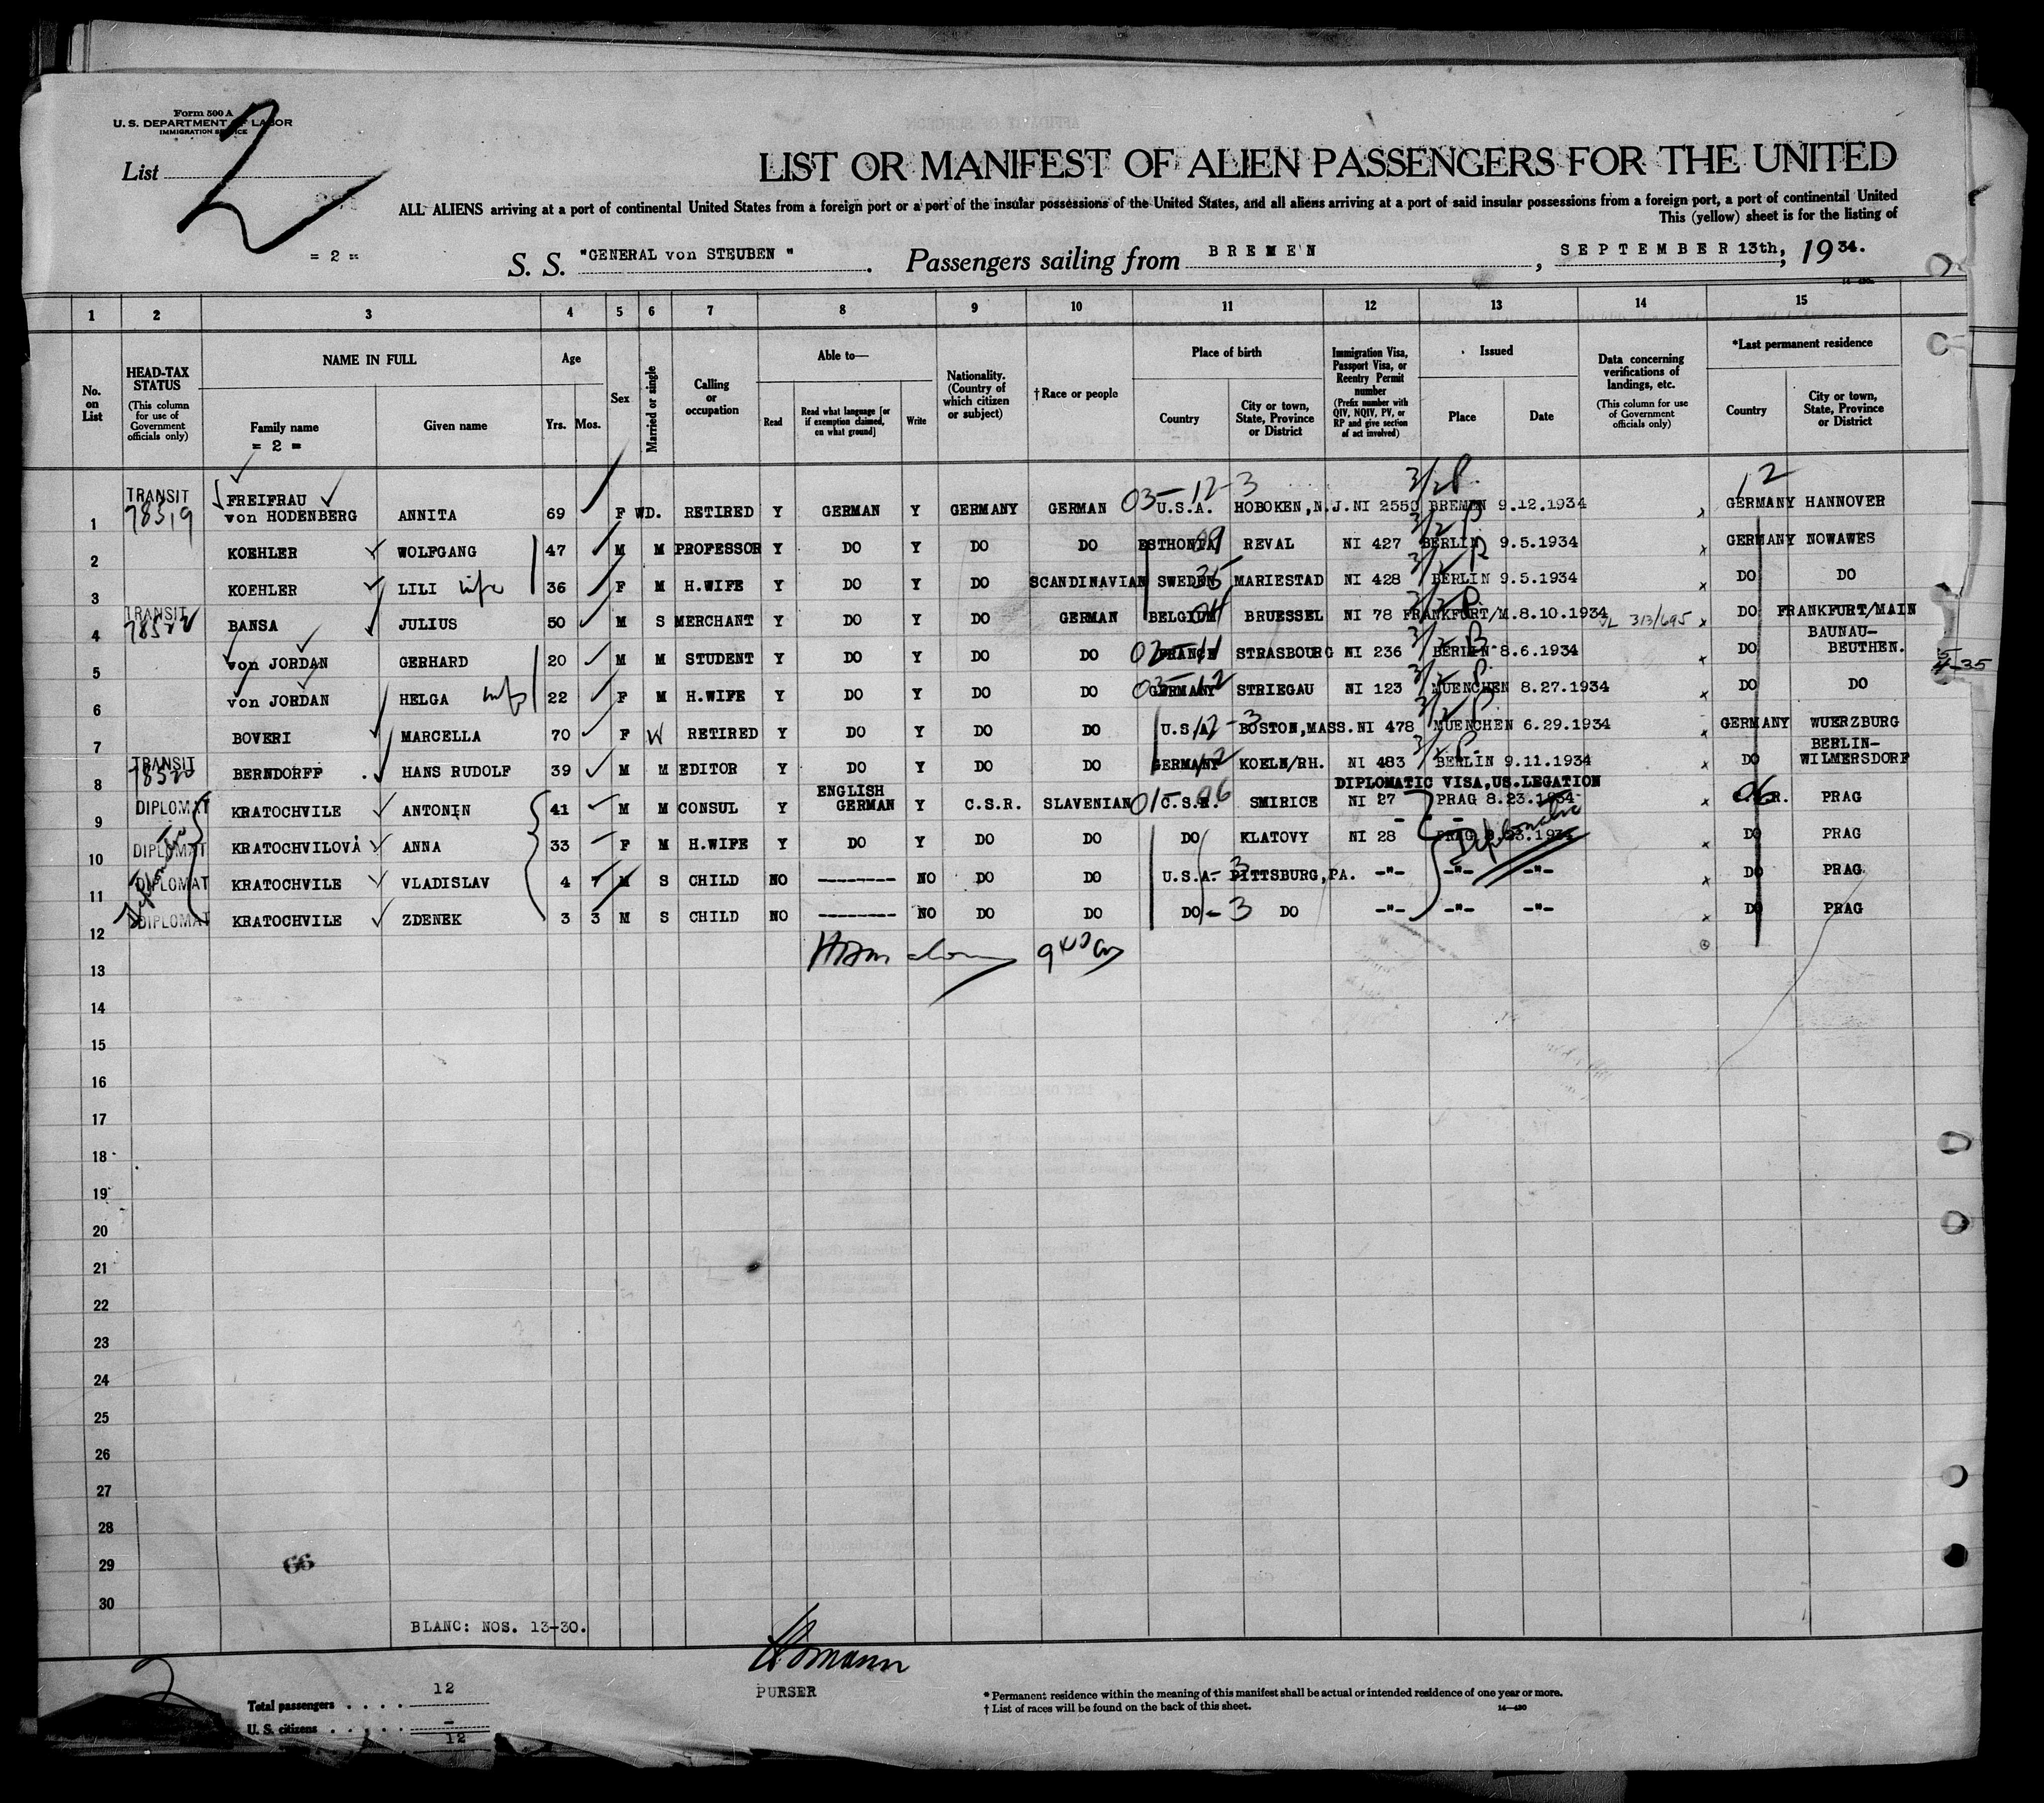 Form 500 A
U. S. DEPARTMENT OF LABOR
IMMIGRATION SERVICE
2
List
LIST OR MANIFEST OF ALIEN PASSENGERS FOR THE UNITED
ALL ALIENS arriving at a port of continental United States from a foreign port or a port of the insular possessions of the United States, and all aliens arriving at a port of said insular possessions from a foreign port, a port of continental United
This (yellow) sheet is for the listing of
= 2 =
S. S. "GENERAL von STEUBEN". Passengers sailing from BREMEN, SEPTEMBER 13th, 1934.
1 2 3 4 5 6 7 8 9 10 11 12 13 14 15
No. on List
HEAD-TAX STATUS
(This column for use of Government officials only)
NAME IN FULL
Family name
= 2 =
Given name
Age
Yrs. Mos.
Sex
Married or single
Calling or occupation
Able to—
Read
Read what language [or if exemption claimed, on what ground]
Write
Nationality. (Country of which citizen or subject)
† Race or people
Place of birth
Country
City or town, State, Province or District
Immigration Visa, Passport Visa, or Reentry Permit number
(Prefix number with QIV, NQIV, PV, or RP and give section of act involved)
Issued
Place
Date
Data concerning verifications of landings, etc.
(This column for use of Government officials only)
*Last permanent residence
Country
City or town, State, Province or District
12
1 TRANSIT 78519 FREIFRAU von HODENBERG ANNITA 69 F WD. RETIRED Y GERMAN Y GERMANY GERMAN 03-12-3 U.S.A. HOBOKEN, N.J. NI 2550 BREMEN 9.12.1934 GERMANY HANNOVER
2 KOEHLER WOLFGANG 47 M M PROFESSOR Y DO Y DO DO ESTHONIA 09 REVAL NI 427 BERLIN 9.5.1934 GERMANY NOWAWES
3 KOEHLER LILI wife 36 F M H.WIFE Y DO Y DO SCANDINAVIAN SWEDEN 35 MARIESTAD NI 428 BERLIN 9.5.1934 DO DO
4 TRANSIT BANSA JULIUS 50 M S MERCHANT Y DO Y DO GERMAN BELGIUM 04 BRUESSEL NI 78 FRANKFURT/M. 8.10.1934 313/695 DO FRANKFURT/MAIN
5 von JORDAN GERHARD 20 M M STUDENT Y DO Y DO DO FRANCE STRASBOURG NI 236 BERLIN 8.6.1934 DO BAUNAU-BEUTHEN.
6 von JORDAN HELGA wife 22 F M H.WIFE Y DO Y DO DO GERMANY 12 STRIEGAU NI 123 MUENCHEN 8.27.1934 DO DO
7 BOVERI MARCELLA 70 F W RETIRED Y DO Y DO DO U.S.A. 12-3 BOSTON, MASS. NI 478 MUENCHEN 6.29.1934 GERMANY WUERZBURG
8 TRANSIT BERNDORFF HANS RUDOLF 39 M M EDITOR Y DO Y DO DO GERMANY 12 KOELN/RH. NI 483 BERLIN 9.11.1934 DO BERLIN-WILMERSDORF
DIPLOMATIC VISA, US.LEGATION
9 DIPLOMAT KRATOCHVILE ANTONIN 41 M M CONSUL Y ENGLISH GERMAN Y C.S.R. SLAVENIAN 01-06 C.S.R. SMIRICE NI 27 PRAG 8.23.1934 C.S.R. 06 PRAG
10 DIPLOMAT KRATOCHVILOVÁ ANNA 33 F M H.WIFE Y DO Y DO DO DO KLATOVY NI 28 PRAG 8.23.1934 Diplomatic DO PRAG
11 DIPLOMAT KRATOCHVILE VLADISLAV 4 7 M S CHILD NO -------- NO DO DO U.S.A. - 3 PITTSBURG, PA. -"- -"- -"- DO PRAG
12 DIPLOMAT KRATOCHVILE ZDENEK 3 3 M S CHILD NO -------- NO DO DO DO - 3 DO -"- -"- -"- DO PRAG
13
14
15
16
17
18
19
20
21
22
23
24
25
26
27
28
29
30
66
BLANC: NOS. 13-30.
PURSER
Total passengers .... 12
U. S. citizens ..... -
12
* Permanent residence within the meaning of this manifest shall be actual or intended residence of one year or more.
† List of races will be found on the back of this sheet.
14—430